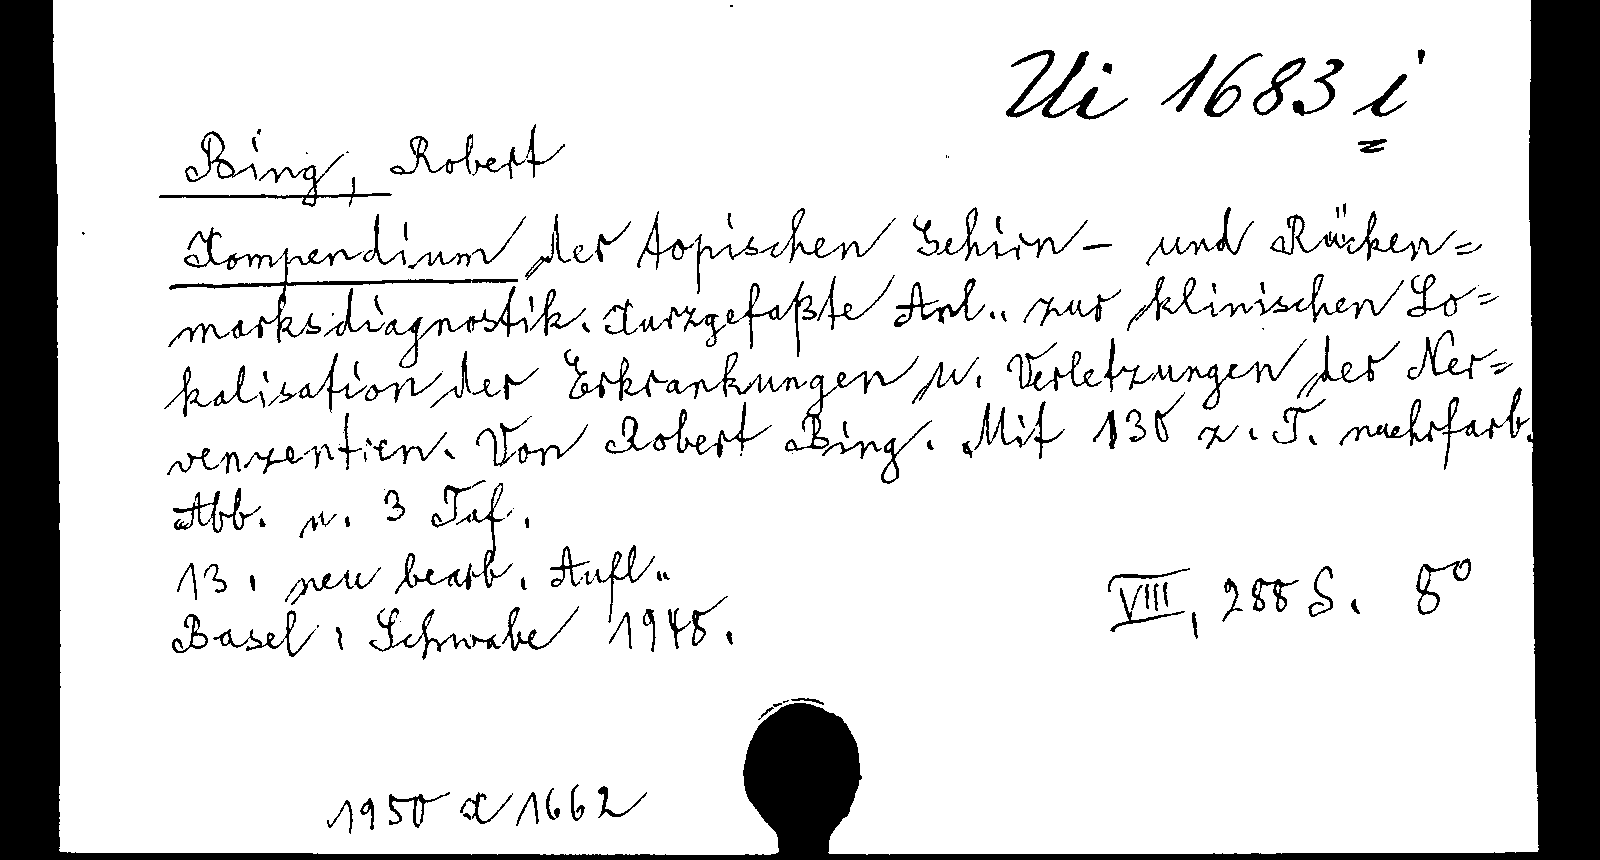 Ui 1683 i
Bing, Robert
Kompendium der topischen Gehirn- und Rücken=
marksdiagnostik. Kurzgefaßte Anl. zur klinischen Lo=
kalisation der Erkrankungen u. Verletzungen der Ner=
venzentren. Von Robert Bing. Mit 130 z. T. mehrfarb.
Abb. u. 3 Taf.
13. neu bearb. Aufl.
Basel: Schwabe 1948.
VIII, 288 S. 8°
1950 a 1662